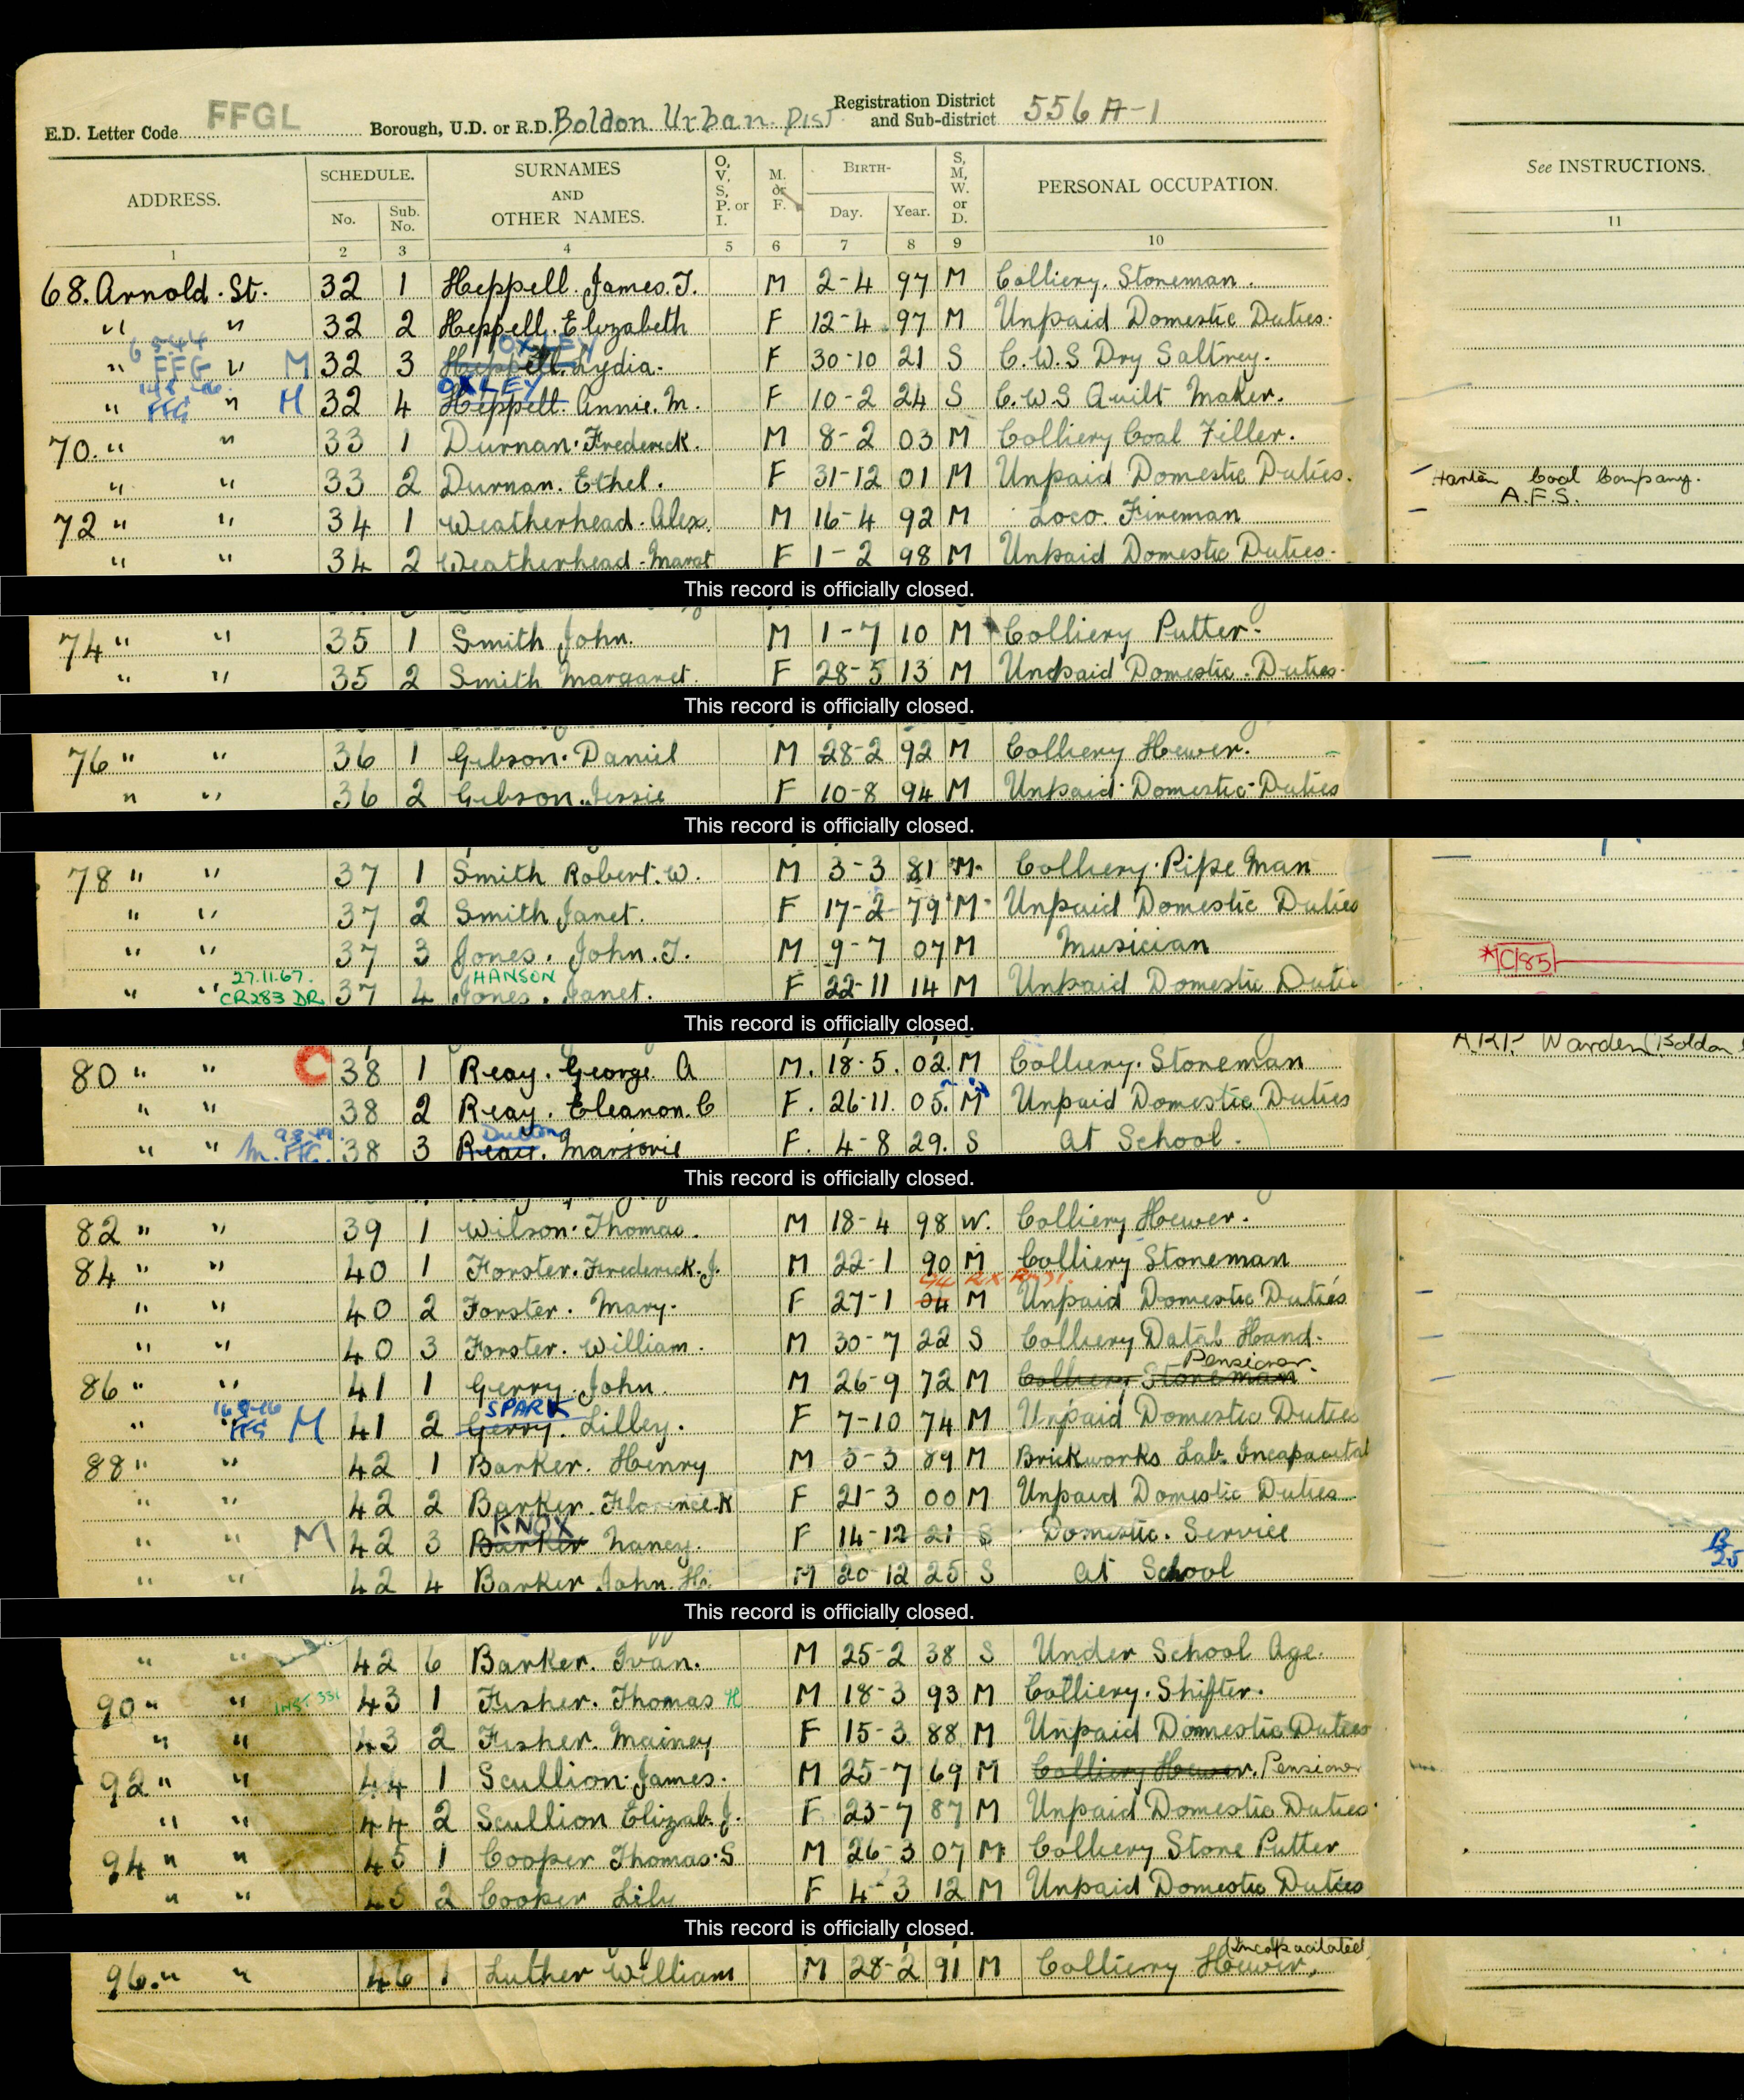 E.D. Letter Code FFGL Borough, U.D. or R.D. Boldon Urban Dist Registration District and Sub-district 556 A-1
ADDRESS. SCHEDULE. No. Sub. No. SURNAMES AND OTHER NAMES. O, V, S, P. or I. M. or F. BIRTH- Day. Year. S, M, W. or D. PERSONAL OCCUPATION. See INSTRUCTIONS.
1 2 3 4 5 6 7 8 9 10 11
68. Arnold. St. 32 1 Heppell. James. T. M 2-4 97 M Colliery. Stoneman.
" " 32 2 Heppell. Elizabeth F 12-4 97 M Unpaid Domestic Duties.
OXLEY
" FFG " M 32 3 Heppell. Lydia. F 30-10 21 S C.W.S Dry Saltrey.
OXLEY
" FFG " M 32 4 Heppell. Annie. M. F 10-2 24 S C.W.S Quilt Maker.
70. " " 33 1 Durnan. Frederick. M 8-2 03 M Colliery Coal Filler.
" " 33 2 Durnan. Ethel. F 31-12 01 M Unpaid Domestic Duties. Harton Coal Company.
A.F.S.
72 " " 34 1 Weatherhead. Alex. M 16-4 92 M Loco. Fireman
" " 34 2 Weatherhead. Margt F 1-2 98 M Unpaid Domestic Duties.
This record is officially closed.
74 " " 35 1 Smith John. M 1-7 10 M Colliery Putter.
" " 35 2 Smith Margaret. F 28-5 13 M Unpaid Domestic. Duties.
This record is officially closed.
76 " " 36 1 Gibson. Daniel M 28-2 92 M Colliery Hewer.
" " 36 2 Gibson. Jessie F 10-8 94 M Unpaid Domestic Duties
This record is officially closed.
78 " " 37 1 Smith Robert. W. M 3-3 81 M. Colliery. Pipe Man
" " 37 2 Smith Janet. F 17-2 79 M. Unpaid Domestic Duties
" " 37 3 Jones. John. T. M 9-7 07 M Musician
27.11.67. HANSON *C185
" " CR283 DR 37 4 Jones. Janet. F 22-11 14 M Unpaid Domestic Duties
This record is officially closed.
A.R.P. Warden (Boldon
80 " " C 38 1 Reay. George A M. 18.5. 02. M Colliery. Stoneman
" " 38 2 Reay. Eleanor. C F. 26.11. 05. M Unpaid Domestic Duties
" " M. FFG. 38 3 Reay. Marjorie F. 4-8 29. S At School.
This record is officially closed.
82 " " 39 1 Wilson. Thomas. M 18-4 98 W. Colliery Hewer.
84 " " 40 1 Forster. Frederick. J. M 22-1 90 M Colliery Stoneman
94
" " 40 2 Forster. Mary. F 27-1 04 M Unpaid Domestic Duties
" " 40 3 Forster. William. M 30-7 22 S Colliery Datal Hand.
Pensioner.
86 " " 41 1 Gerry. John. M 26-9 72 M Colliery Stoneman
SPARK
" " FFG M 41 2 Gerry. Lilley. F 7-10 74 M Unpaid Domestic Duties
88 " " 42 1 Barker. Henry M 5-3 89 M Brickworks Lab. Incapacitat
" " 42 2 Barker. Florence. K F 21-3 00 M Unpaid Domestic Duties
KNOX
" " M 42 3 Barker Nancy. F 14-12 21 S Domestic. Service
" " 42 4 Barker John. Hy. M 20-12 25 S At School
This record is officially closed.
" " 42 6 Barker. Ivan. M 25-2 38 S Under School Age.
90 " " INST 331 43 1 Fisher. Thomas H M 18-3 93 M Colliery. Shifter.
" " 43 2 Fisher. Mainey F 15-3 88 M Unpaid Domestic Duties
92 " " 44 1 Scullion. James. M 25-7 69 M Colliery Hewer. Pensioner
" " 44 2 Scullion Elizab. J. F 23-7 87 M Unpaid Domestic Duties.
94 " " 45 1 Cooper Thomas. S M 26-3 07 M Colliery Stone Putter
" " 45 2 Cooper Lily F 4-3 12 M Unpaid Domestic Duties
This record is officially closed.
Incapacitated
96. " " 46 1 Luther William M 28-2 91 M Colliery Hewer,